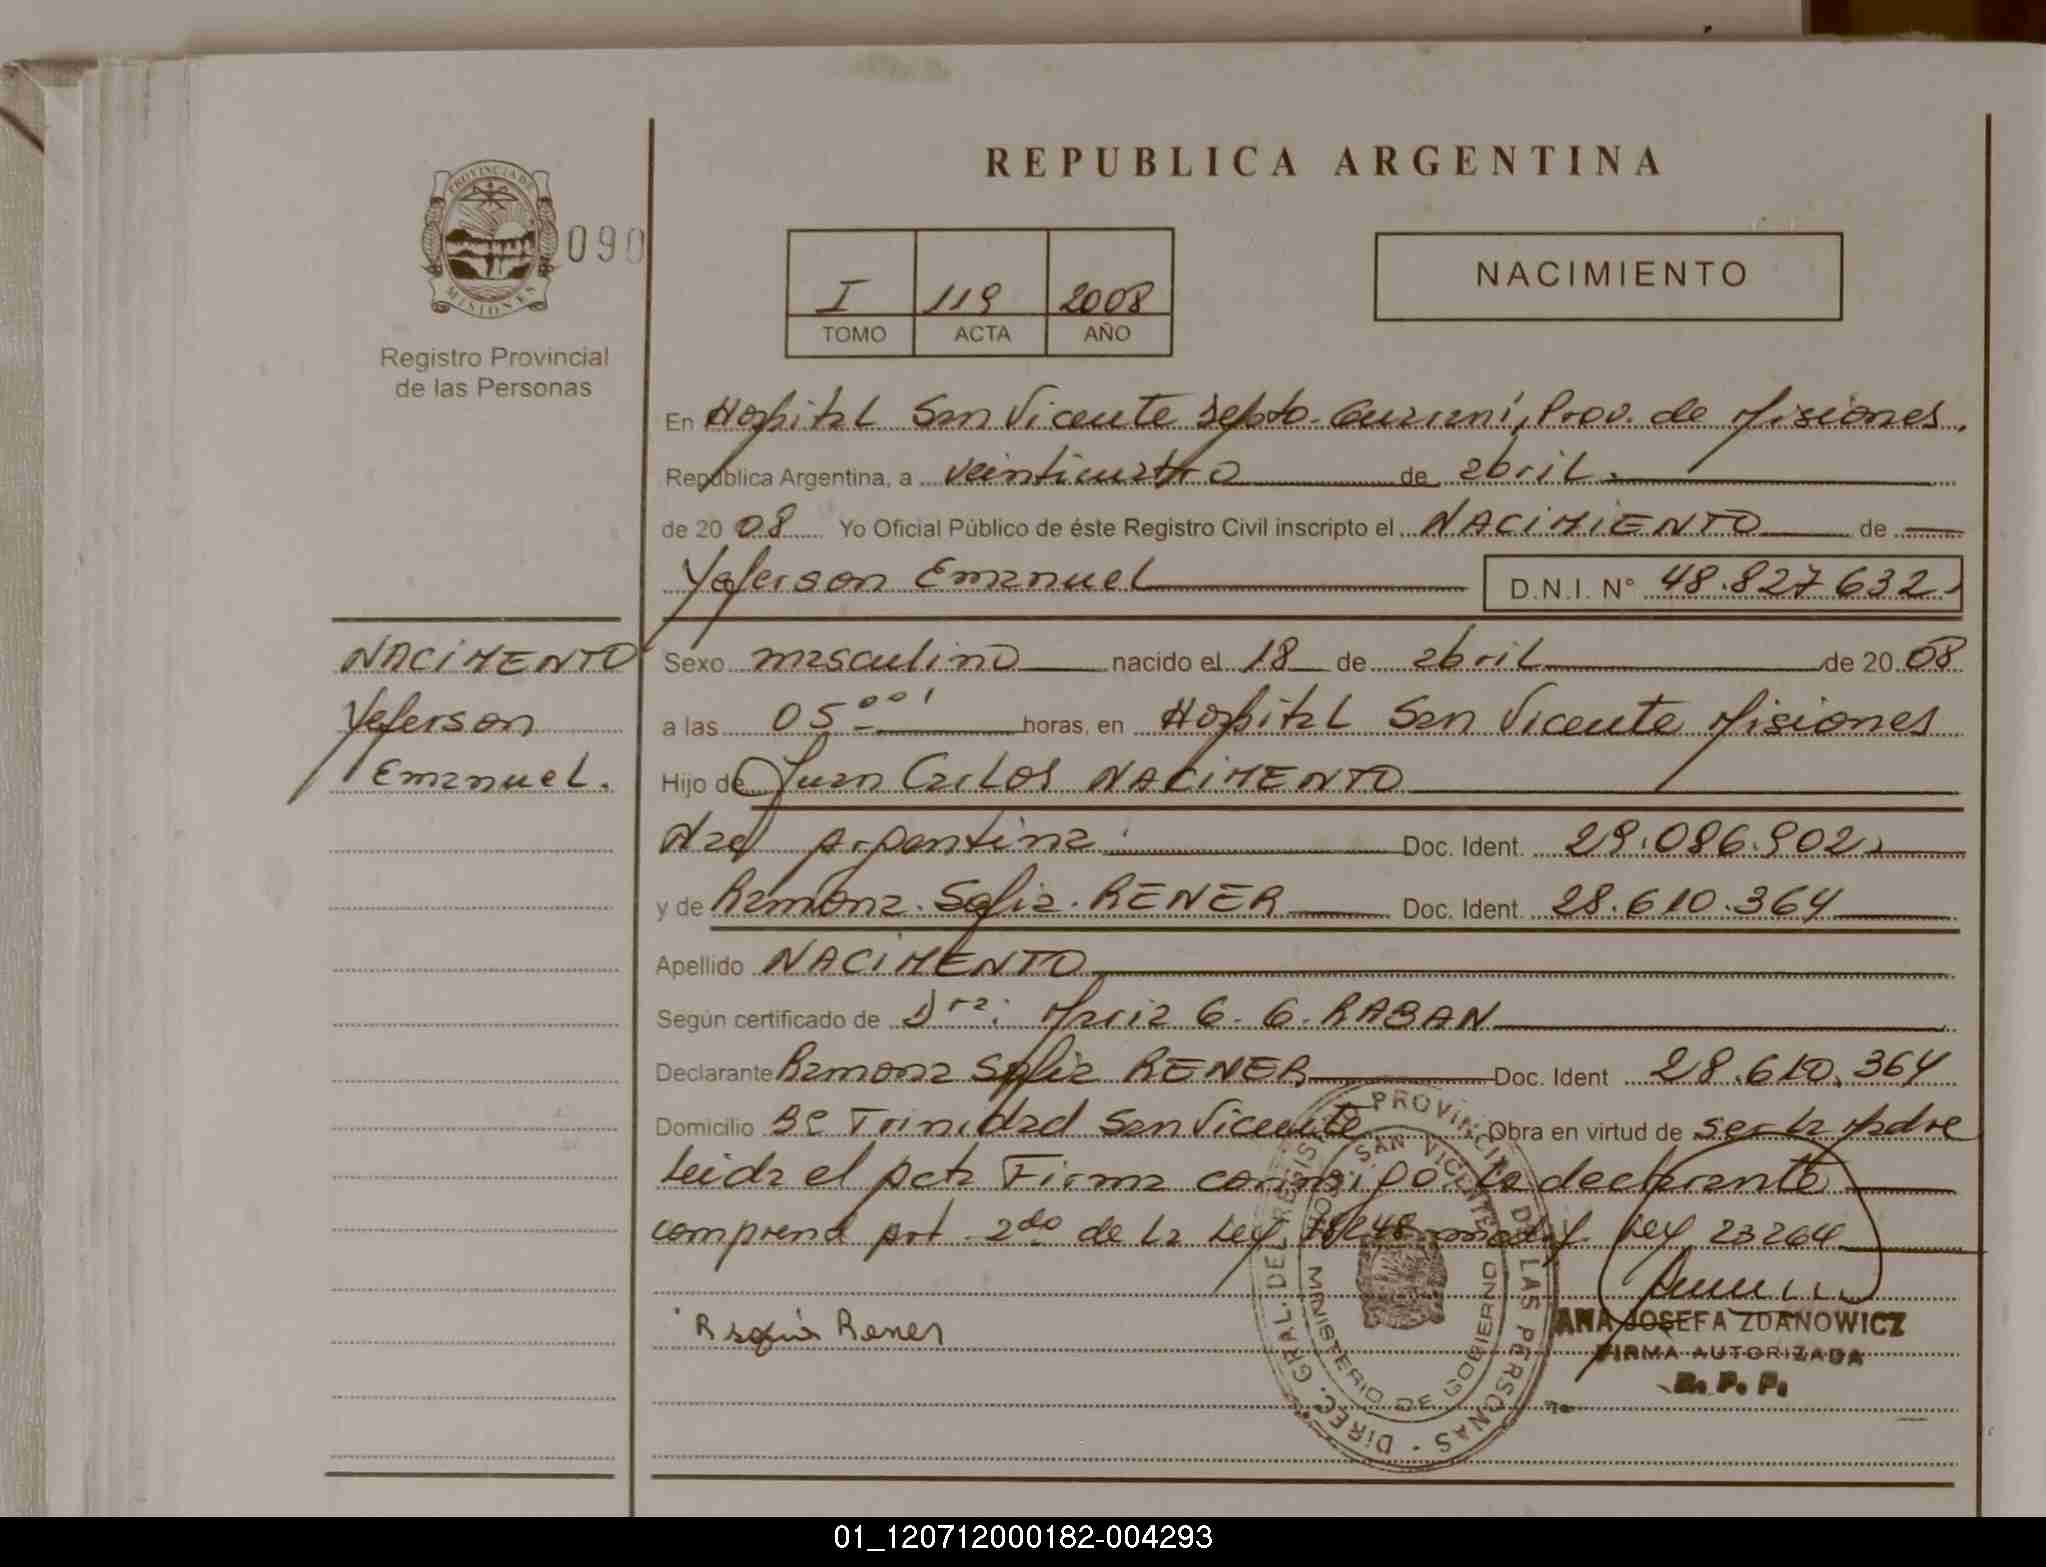 REPUBLICA ARGENTINA
PROVINCIA DE
MISIONES
090
Registro Provincial
de las Personas
I 119 2008
TOMO ACTA AÑO
NACIMIENTO
En Hospital San Vicente Depto. Guarani, Prov. de Misiones.
República Argentina, a veinticuatro de abril.
de 2008 Yo Oficial Público de éste Registro Civil inscripto el NACIMIENTO de
Yeferson Emanuel D.N.I. N° 48.827.632
NACIMENTO
Yeferson
Emanuel.
Sexo masculino nacido el 18 de abril de 2008
a las 05 00' horas, en Hospital San Vicente Misiones
Hijo de Juan Carlos NACIMENTO
Nac Argentina. Doc. Ident. 29.086.902
y de Ramona Sofia RENER Doc. Ident. 28.610.364
Apellido NACIMENTO
Según certificado de Dra. Maria G. G. RABAN
Declarante Ramona Sofia RENER Doc. Ident 28.610.364
Domicilio Bº Trinidad San Vicente Obra en virtud de ser la Madre
Leida el Acta Firma conmigo la declarante
comprend Art 2do de la Ley 18248 modif. Ley 23264
R sofia Rener
DIREC. GRAL. DEL REGISTRO PROVINCIAL DE LAS PERSONAS
SAN VICENTE
MINISTERIO DE GOBIERNO
ANA JOSEFA ZDANOWICZ
FIRMA AUTORIZADA
R. P. P.
01_120712000182-004293